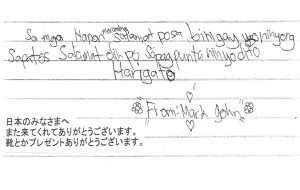 Sa mga Hapon maraming salamat po sa binigay ninyong
Sapatos Salamat din po Sa pagpunta ninyo dito
Marigato
From: Mark John
日本のみなさまへ
また来てくれてありがとうございます。
靴とかプレゼントありがとうございます。